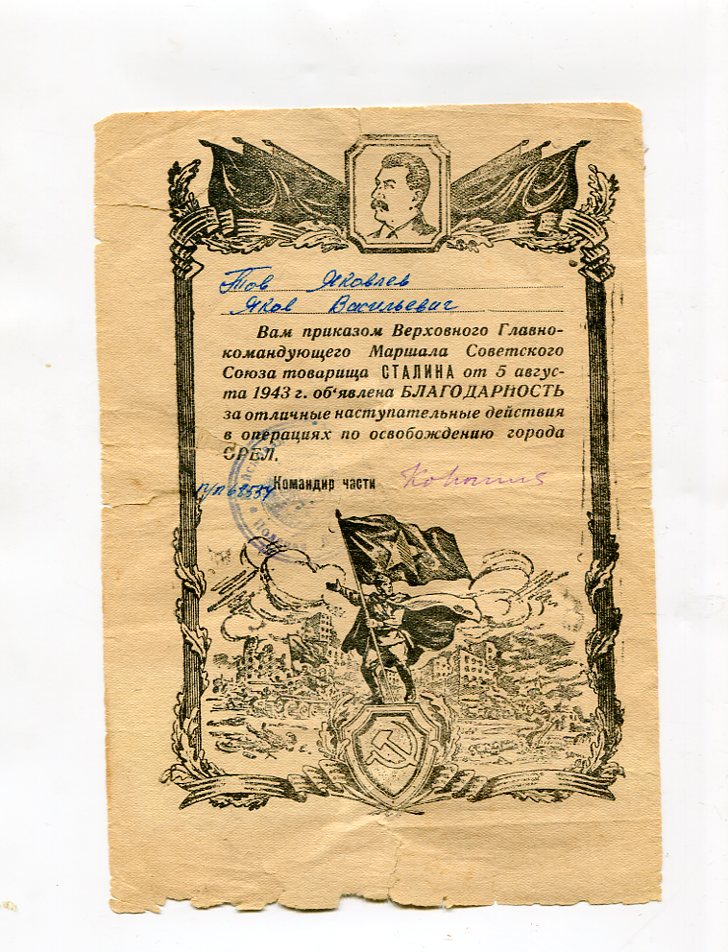 Тов Яковлев
Яков Васильевич
Вам приказом Верховного Главно-
командующего Маршала Советского
Союза товарища СТАЛИНА от 5 авгус-
та 1943 г. об'явлена БЛАГОДАРНОСТЬ
за отличные наступательные действия
в операциях по освобождению города
ОРЕЛ.
Командир части